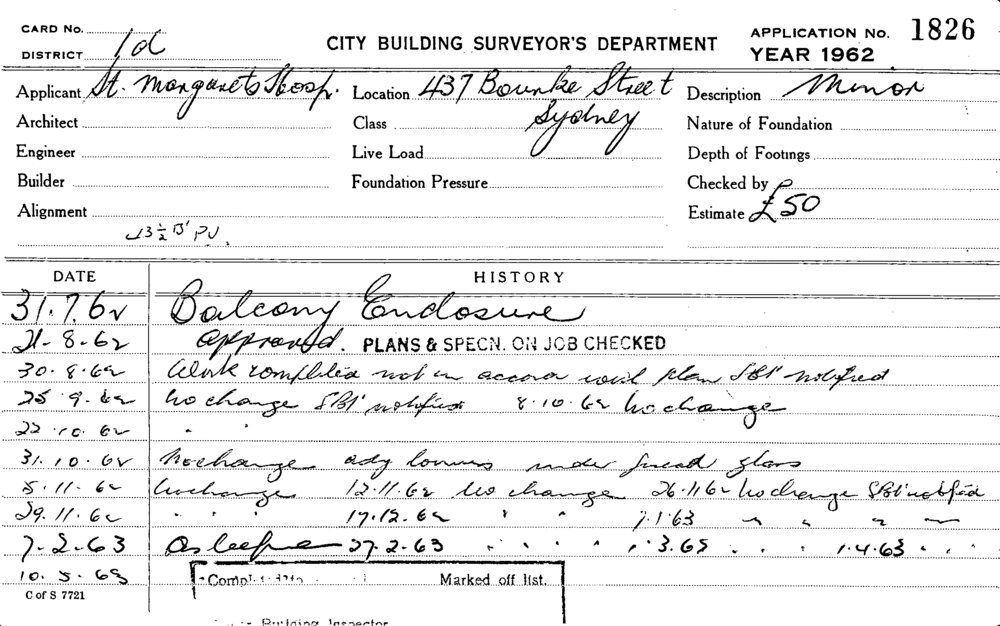 CARD No. CITY BUILDING SURVEYOR'S DEPARTMENT APPLICATION No. 1826
DISTRICT 1d YEAR 1962
Applicant St. Margarets Hosp. Location 437 Bourke Street Description Minor
Architect Class Sydney Nature of Foundation
Engineer Live Load Depth of Footings
Builder Foundation Pressure Checked by
Alignment Estimate £50
DATE HISTORY
31.7.62 Balcony Enclosure
21-8-62 approved. PLANS & SPECN. ON JOB CHECKED
30.8.62 Work completed not in accord with plan notified
25.9.62 No change notified 8.10.62 No change
22.10.62 " "
31.10.62 No change adj louvres under fixed glass
5.11.62 No change 12.11.62 No change 26.11.62 No change notified
29.11.62 " " 17.12.62 " " 7.1.63 " " " "
7-2-63 As before 27.2.63 " " " " " " 1.4.63 " "
10.5.63 Marked off list.
C of S 7721
Building Inspector